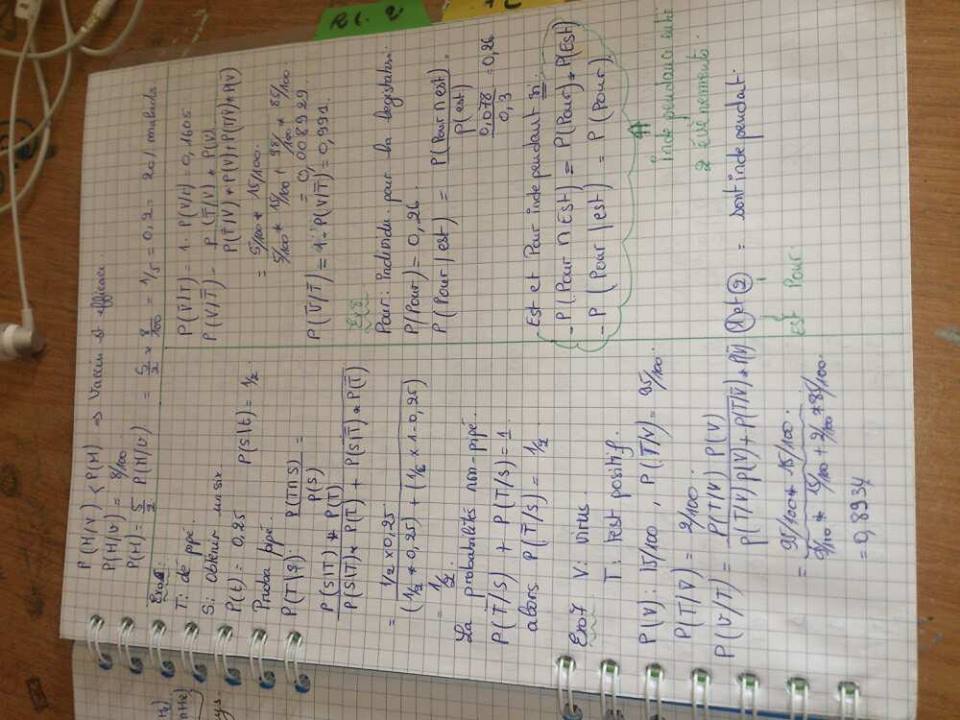 P(M/V) < P(M) => Vaccin est efficace.
P(M/V) = 8/100
P(M) = 5/2 P(M/V) = 5/2 × 8/100 = 1/5 = 0,2 = 20% malade
Exo6:
T: dé pipé.
S: obtenir un six.
P(t) = 0,25 P(S\t) = 1/2
Proba pipé.
P(T\S): P(T∩S) / P(S) =
P(S|T) * P(T) / P(S|T) * P(T) + P(S|T̅) * P(T̅)
= 1/2 × 0,25 / (1/2 * 0,25) + (1/6 × 1 - 0,25)
= 1/2.
La probabilités non-pipé.
P(T̅/S) + P(T/S) = 1
alors P(T̅/S) = 1/2
Exo7 V: virus.
T: test positif.
P(V): 15/100, P(T/V) = 95/100.
P(T/V̅) = 2/100.
P(V/T) = P(T/V) P(V) / P(T/V) P(V) + P(T/V̅) * P(V̅)
= 95/100 * 15/100. / 95/100 * 15/100 + 2/100 * 85/100.
= 0,8934
P(V̅/T) = 1 - P(V/t) = 0,1605
P(V/T̅) = P(T̅/V) * P(V) / P(T̅/V) * P(V) + P(T̅/V̅) * P(V̅)
= 5/100 * 15/100. / 5/100 * 15/100 + 98/100 * 85/100.
= 0,008929.
P(V̅/T̅) = 1 - P(V/T̅) = 0,991.
Ex8
Pour: Individu pour la legislation.
P(Pour) = 0,26.
P(Pour/est) = P(Pour ∩ est) / P(est)
0,078 / 0,3 = 0,26
Est et Pour independant si:
- P(Pour ∩ Est) = P(Pour) * P(Est)
- P(Pour/est) = P(Pour).
independance entre
2 évènements.
1 et 2 = sont independant.
Est Pour.